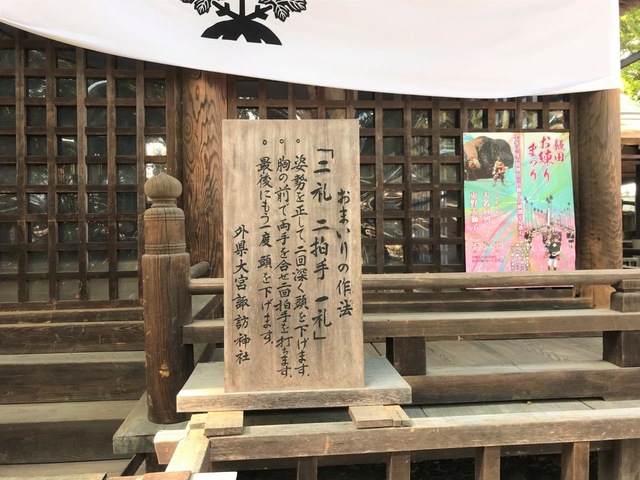 おまいりの作法
「二礼 二拍手 一礼」
。姿勢を正して二回深く頭を下げます。
。胸の前で両手を合せ二回拍手を打ちます。
。最後にもう一度、頭を下げます。
外県大宮諏訪神社
飯田
お練り
まつり